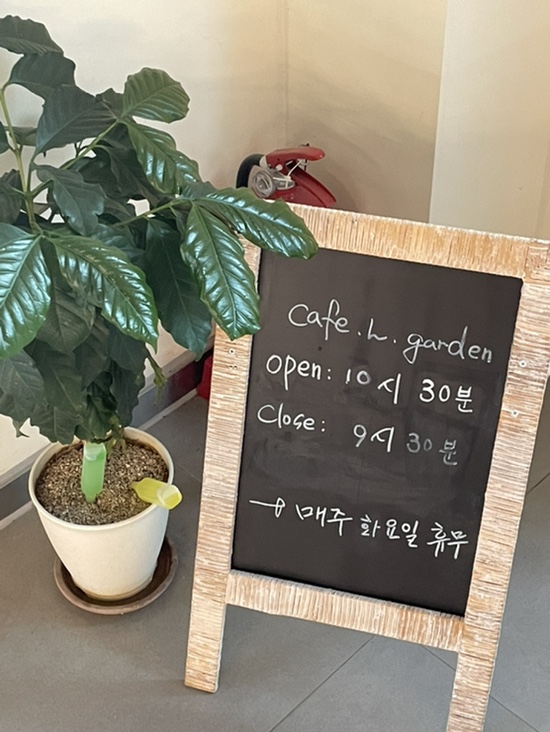 Cafe. h. garden
Open: 10시 30분
Close: 9시 30분
매주 화요일 휴무